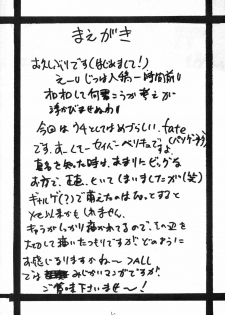 まえがき
お久しぶりです(はじめまして!)
えー!! じつは入稿一時間前!!
和和して何書こうか考えが
浮かびませぬわ!
今回はウチとしてはめづらしい、fate
です。そしてセイバーペリキュですよ
真名を知った時は、あまりにビッグな
お方で、正直、といてまいましたが(笑)
ギャルゲ(?)で萌えたのはひょっとすると
YU以来かもしれません。
キャラがしっかり描かれてるので、その辺を
大切にして描いたつもりですが、どのように
お感じになりますかね〜>ALL
では みじかいマンガですが
ご賞味下さいませ〜!